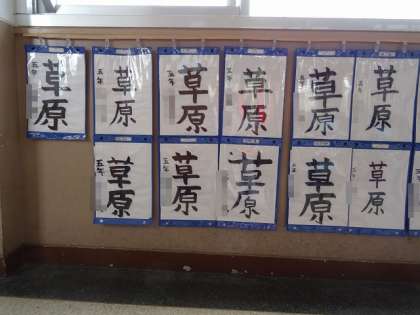 草原
五年
草原
五年
草原
五年
草原
五年
草原
五年
草原
五年
草原
五年
草原
五年
草原
五年
草原
五年
草原
五年
草原
五年